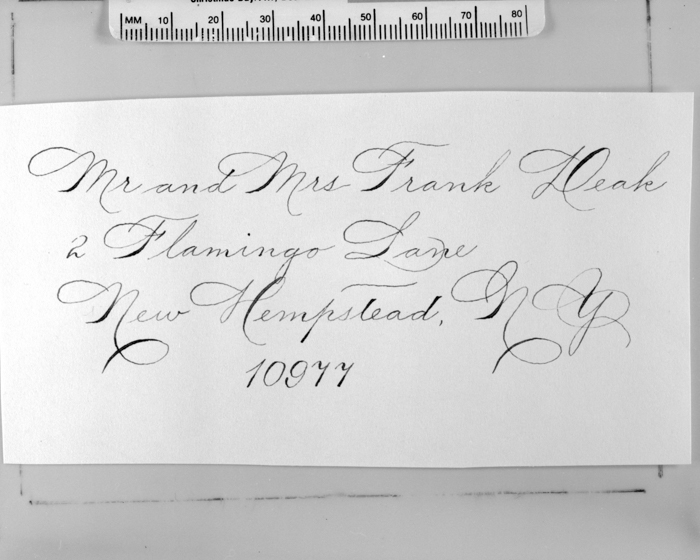 MM 10 20 30 40 50 60 70 80
Mr and Mrs Frank Deak
2 Flamingo Lane
New Hempstead, NY
10977